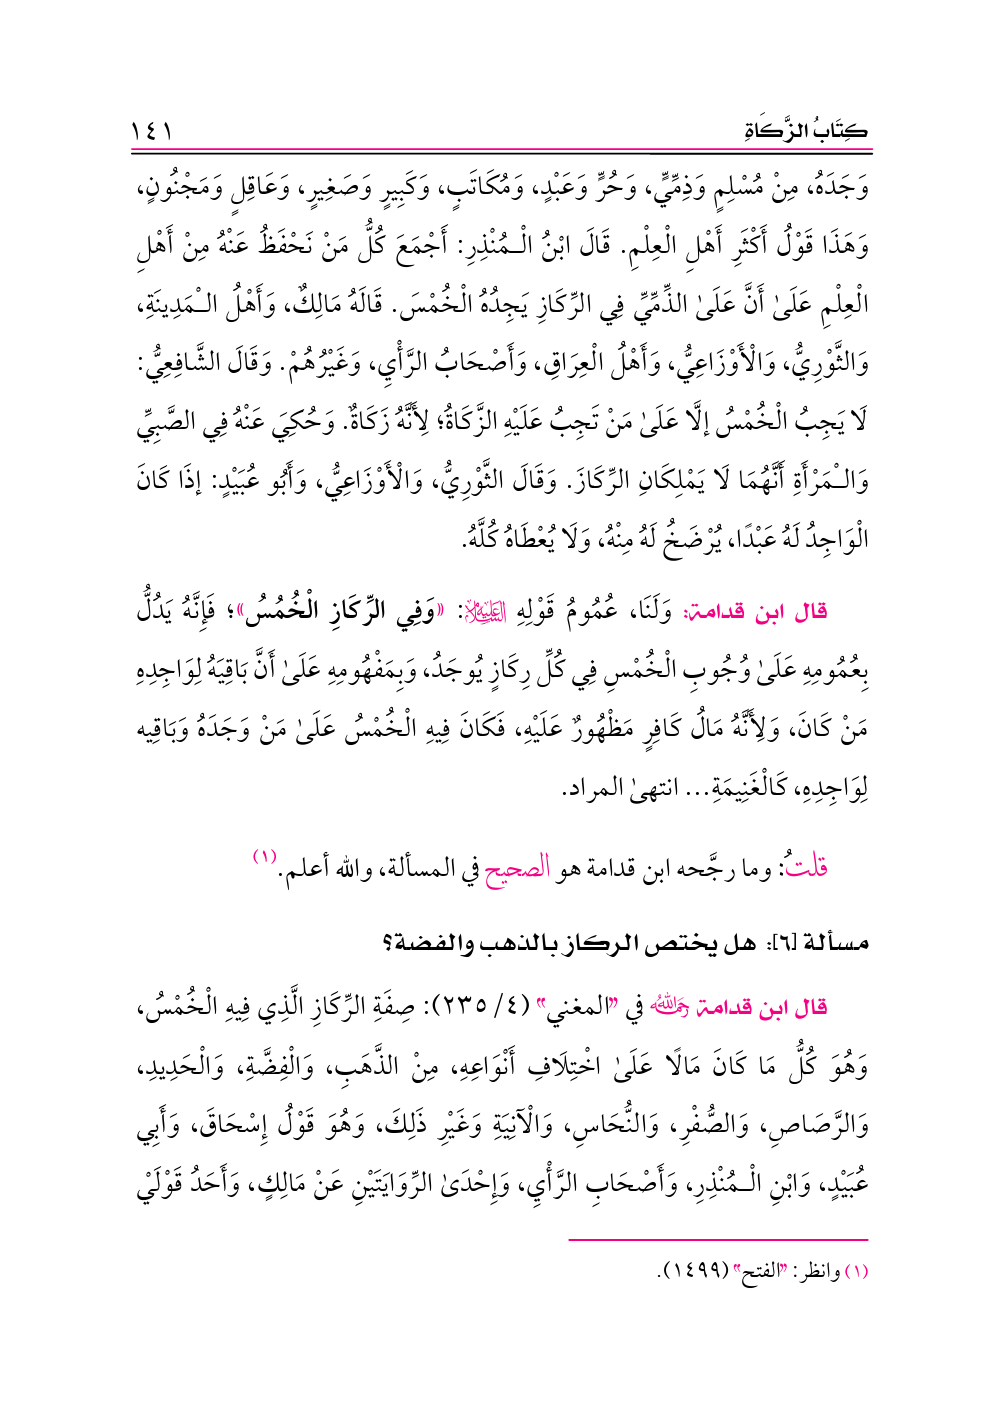 كِتَابُ الزَّكَاةِ ١٤١
وَجَدَهُ، مِنْ مُسْلِمٍ وَذِمِّيٍّ، وَحُرٍّ وَعَبْدٍ، وَمُكَاتَبٍ، وَكَبِيرٍ وَصَغِيرٍ، وَعَاقِلٍ وَمَجْنُونٍ،
وَهَذَا قَوْلُ أَكْثَرِ أَهْلِ الْعِلْمِ. قَالَ ابْنُ الْـمُنْذِرِ: أَجْمَعَ كُلُّ مَنْ نَحْفَظُ عَنْهُ مِنْ أَهْلِ
الْعِلْمِ عَلَىٰ أَنَّ عَلَىٰ الذِّمِّيِّ فِي الرِّكَازِ يَجِدُهُ الْخُمْسَ. قَالَهُ مَالِكٌ، وَأَهْلُ الـْمَدِينَةِ،
وَالثَّوْرِيُّ، وَالْأَوْزَاعِيُّ، وَأَهْلُ الْعِرَاقِ، وَأَصْحَابُ الرَّأْيِ، وَغَيْرُهُمْ. وَقَالَ الشَّافِعِيُّ:
لَا يَجِبُ الْخُمْسُ إلَّا عَلَىٰ مَنْ تَجِبُ عَلَيْهِ الزَّكَاةُ؛ لِأَنَّهُ زَكَاةٌ. وَحُكِيَ عَنْهُ فِي الصَّبِيِّ
وَالـْمَرْأَةِ أَنَّهُمَا لَا يَمْلِكَانِ الرِّكَازَ. وَقَالَ الثَّوْرِيُّ، وَالْأَوْزَاعِيُّ، وَأَبُو عُبَيْدٍ: إذَا كَانَ
الْوَاجِدُ لَهُ عَبْدًا، يُرْضَخُ لَهُ مِنْهُ، وَلَا يُعْطَاهُ كُلَّهُ.
قال ابن قدامة: وَلَنَا، عُمُومُ قَوْلِهِ عليه السلام: «وَفِي الرِّكَازِ الْخُمُسُ»؛ فَإِنَّهُ يَدُلُّ
بِعُمُومِهِ عَلَىٰ وُجُوبِ الْخُمْسِ فِي كُلِّ رِكَازٍ يُوجَدُ، وَبِمَفْهُومِهِ عَلَىٰ أَنَّ بَاقِيَهُ لِوَاجِدِهِ
مَنْ كَانَ، وَلِأَنَّهُ مَالُ كَافِرٍ مَظْهُورٌ عَلَيْهِ، فَكَانَ فِيهِ الْخُمْسُ عَلَىٰ مَنْ وَجَدَهُ وَبَاقِيه
لِوَاجِدِهِ، كَالْغَنِيمَةِ... انتهىٰ المراد.
قلتُ: وما رجَّحه ابن قدامة هو الصحيح في المسألة، والله أعلم.(١)
مسألة [٦]: هل يختص الركاز بالذهب والفضة؟
قال ابن قدامة رحمه الله في "المغني" (٤/ ٢٣٥): صِفَةِ الرِّكَازِ الَّذِي فِيهِ الْخُمْسُ،
وَهُوَ كُلُّ مَا كَانَ مَالًا عَلَىٰ اخْتِلَافِ أَنْوَاعِهِ، مِنْ الذَّهَبِ، وَالْفِضَّةِ، وَالْحَدِيدِ،
وَالرَّصَاصِ، وَالصُّفْرِ، وَالنُّحَاسِ، وَالْآنِيَةِ وَغَيْرِ ذَلِكَ، وَهُوَ قَوْلُ إِسْحَاقَ، وَأَبِي
عُبَيْدٍ، وَابْنِ الْـمُنْذِرِ، وَأَصْحَابِ الرَّأْيِ، وَإِحْدَىٰ الرِّوَايَتَيْنِ عَنْ مَالِكٍ، وَأَحَدُ قَوْلَيْ
(١) وانظر: "الفتح" (١٤٩٩).